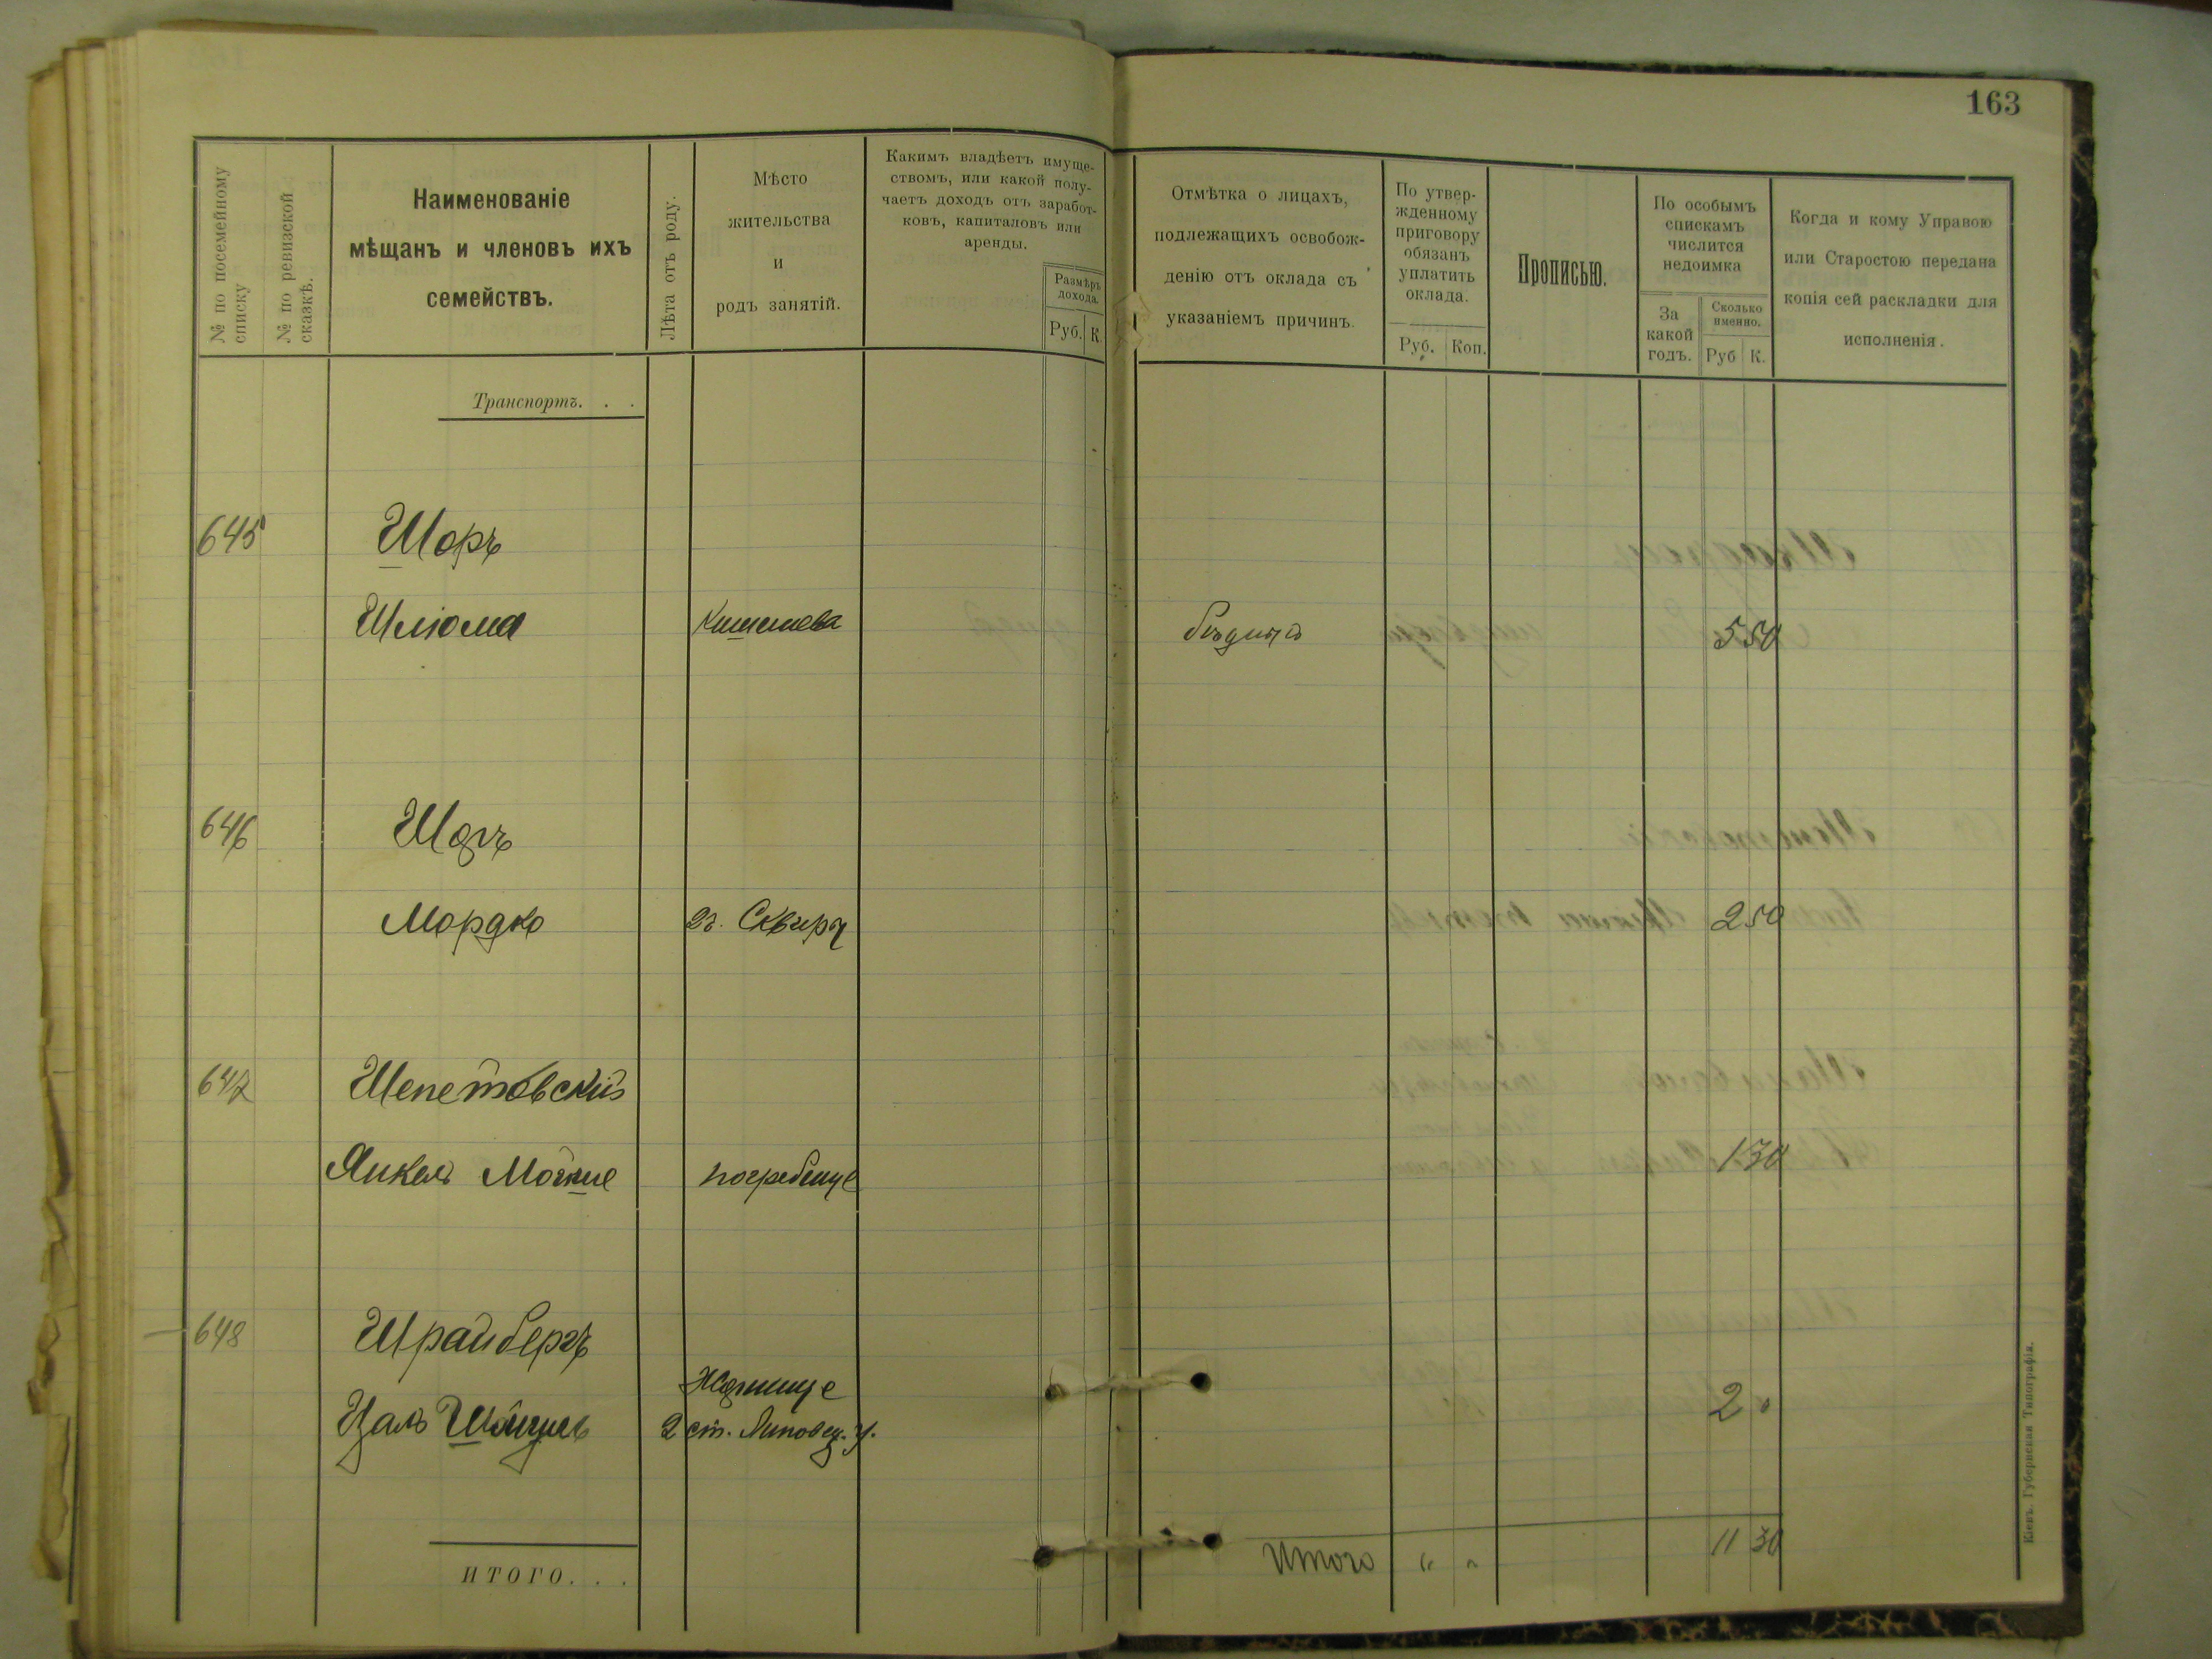 163
№ по посемейному
списку
№ по ревизской
сказкѣ.
Наименованіе
мѣщанъ и членовъ ихъ
семействъ.
Лѣта отъ роду.
Мѣсто
жительства
и
родъ занятій.
Какимъ владѣетъ имуще-
ствомъ, или какой полу-
чаетъ доходъ отъ заработ-
ковъ, капиталовъ или
аренды.
Размѣръ
дохода.
Руб. К.
Отмѣтка о лицахъ,
подлежащихъ освобож-
денію отъ оклада съ
указаніемъ причинъ.
По утвер-
жденному
приговору
обязанъ
уплатить
оклада.
Руб. Коп.
Прописью.
По особымъ
спискамъ
числится
недоимка
За
какой
годъ.
Сколько
именно.
Руб К.
Когда и кому Управою
или Старостою передана
копія сей раскладки для
исполненія.
Транспортъ. . .
645 Шоръ
Шліома Кишенева 5 50
646 Шоръ
Мордко гг. Сквиры 2 50
647 Шепетовскій
Янкель Мошке погребище 1 30
648 Шрайбергъ
Жорнище
Цаль 2 ст. Липовец. у. 2 "
ИТОГО. . .
Итого " " 11 30
Кіевъ. Губернская Типографія.